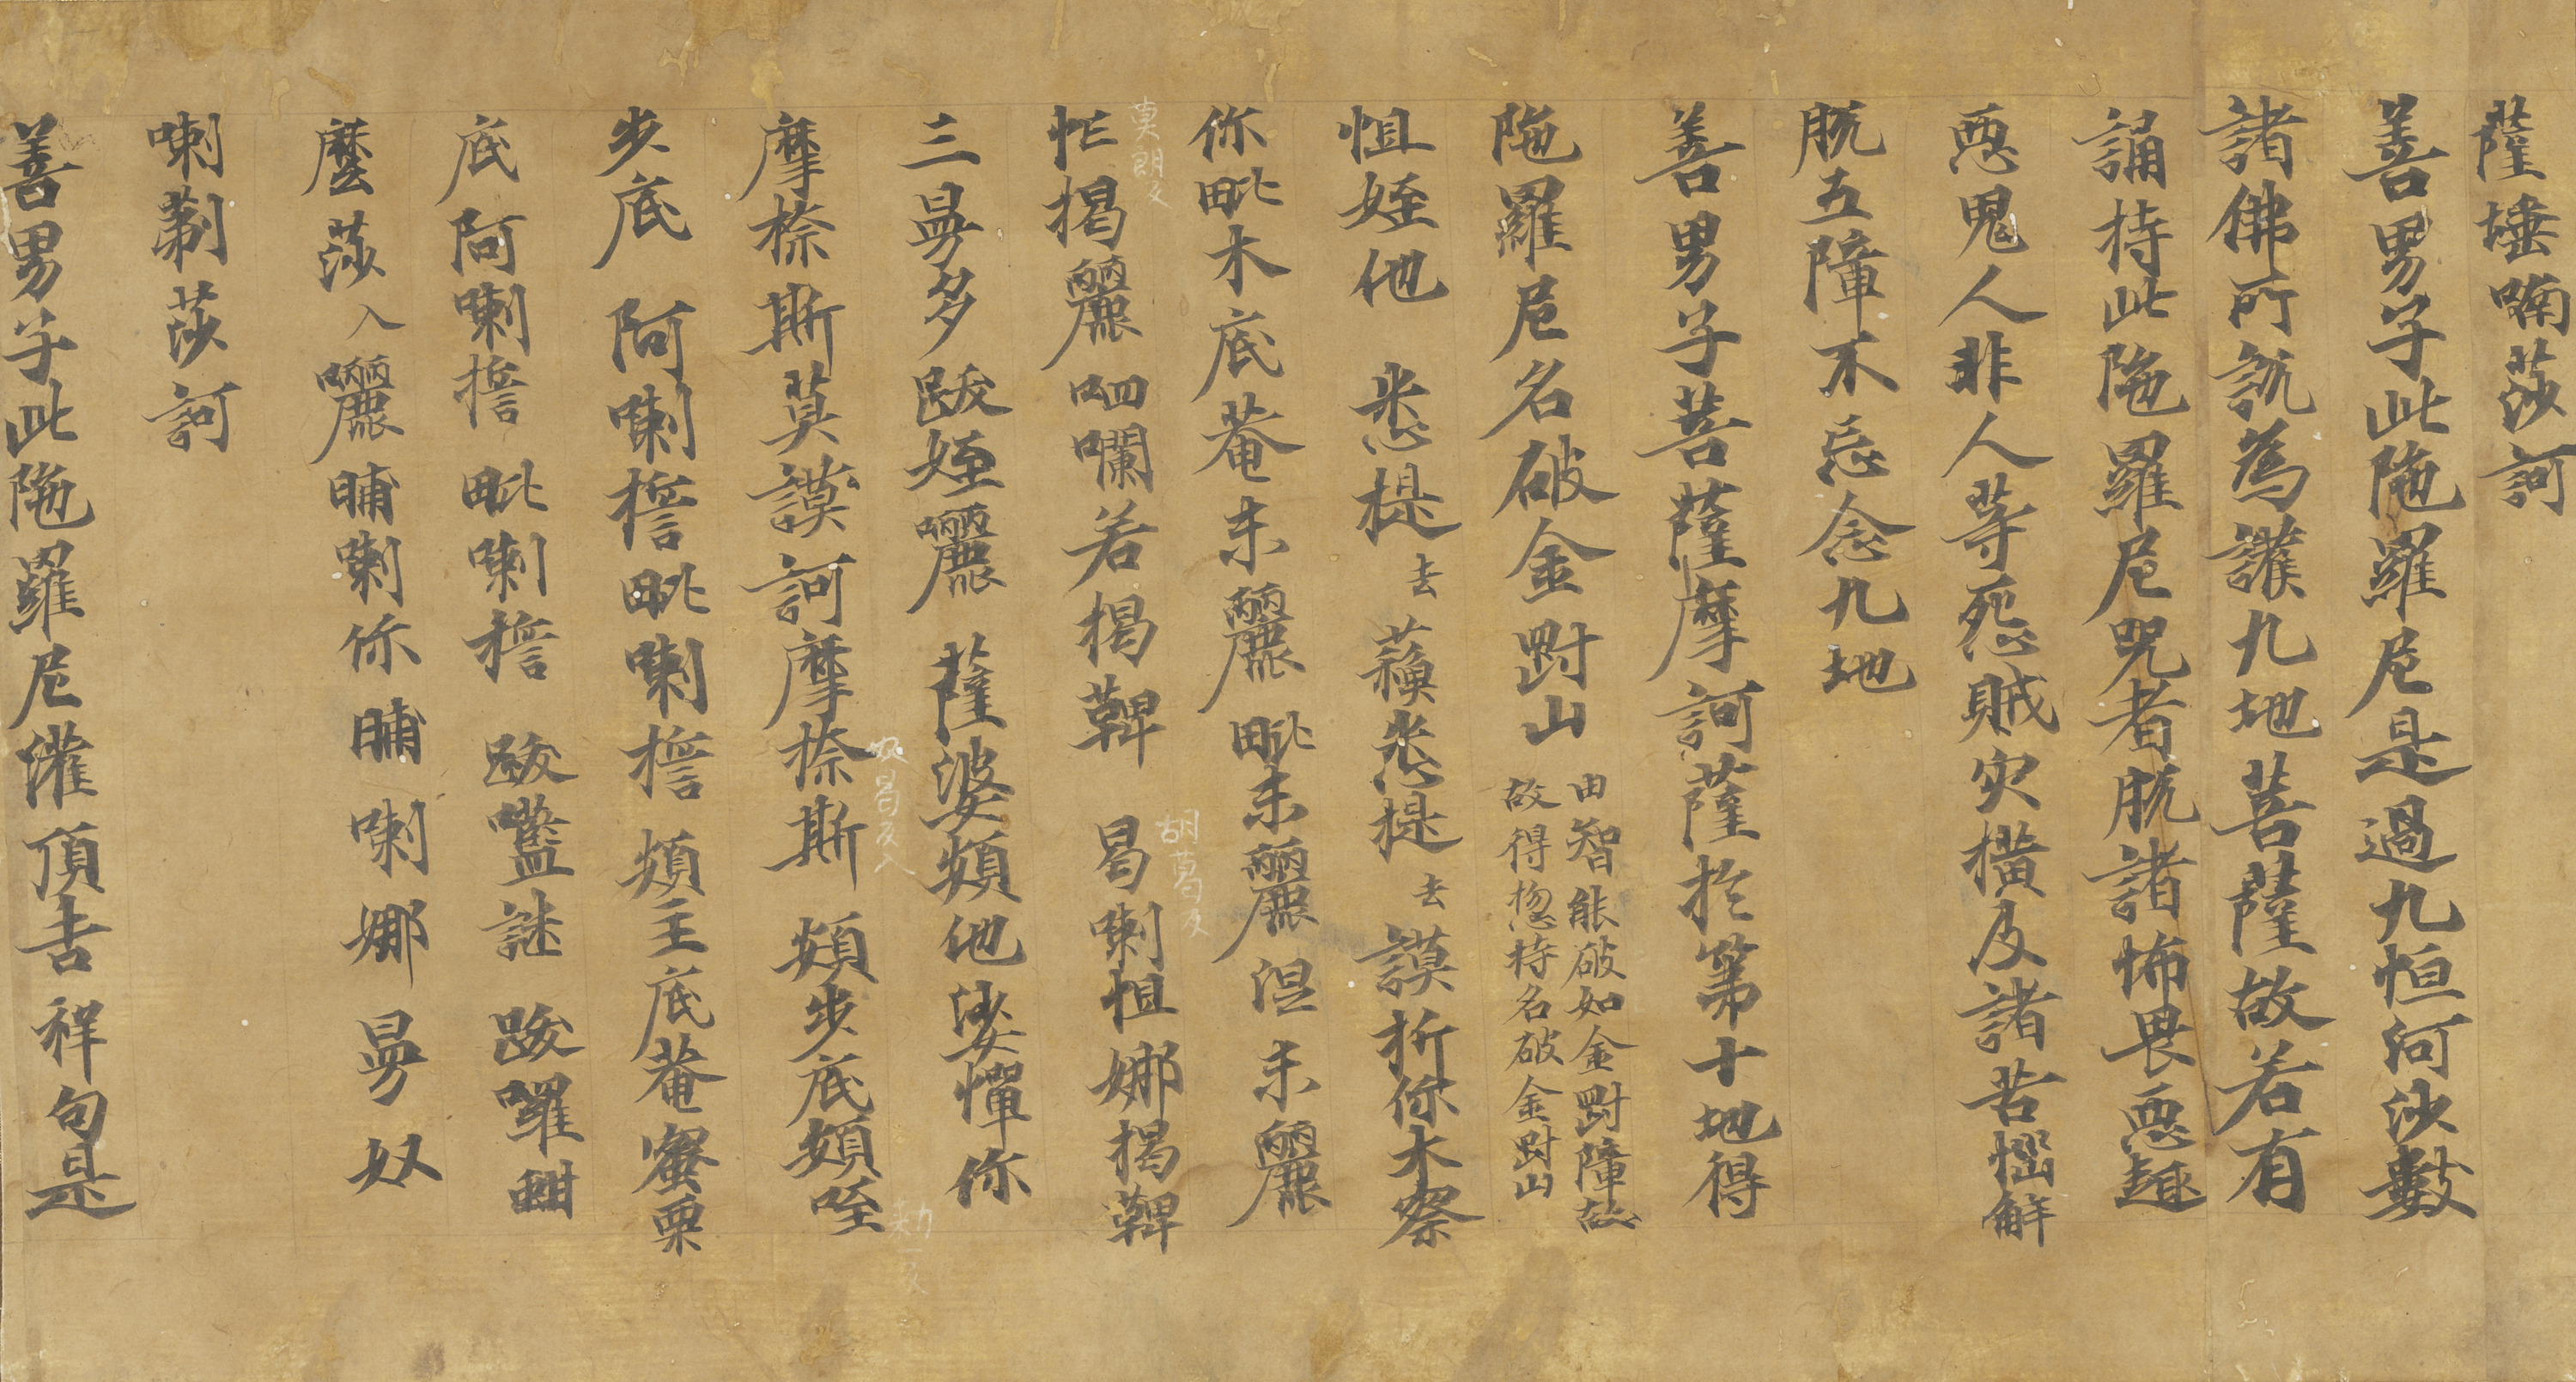 薩埵喃莎訶
善男子此陁羅尼是過九恒河沙數
諸佛所說為護九地菩薩故若有
誦持此陁羅尼呪者脱諸怖畏惡趣
惡鬼人非人等怨賊灾橫及諸苦惱解
脱五障不忘念九地
善男子菩薩摩訶薩於第十地得
陁羅尼名破金對山
由智能破如金對障故
故得惣持名破金對山
怛姪他 悉提去 蘓悉提去 謨折你木察
你毗木底菴末麗毗末麗涅末麗
忙揭麗呬嚂若揭鞞 曷喇怛娜揭鞞
莫朗反
胡葛反
三曼多跋姪麗 薩婆頞他娑憚你
摩捺斯莫謨訶摩捺斯 頞步底頞窒
奴曷反入
步底 阿喇擔毗喇擔 頞主底菴蜜栗
底阿喇擔毗喇擔 跋嚂謎 跋囉甜
麼莎入囇晡喇你晡喇娜曼奴
喇剃莎訶
善男子此陁羅尼灌頂吉祥句是